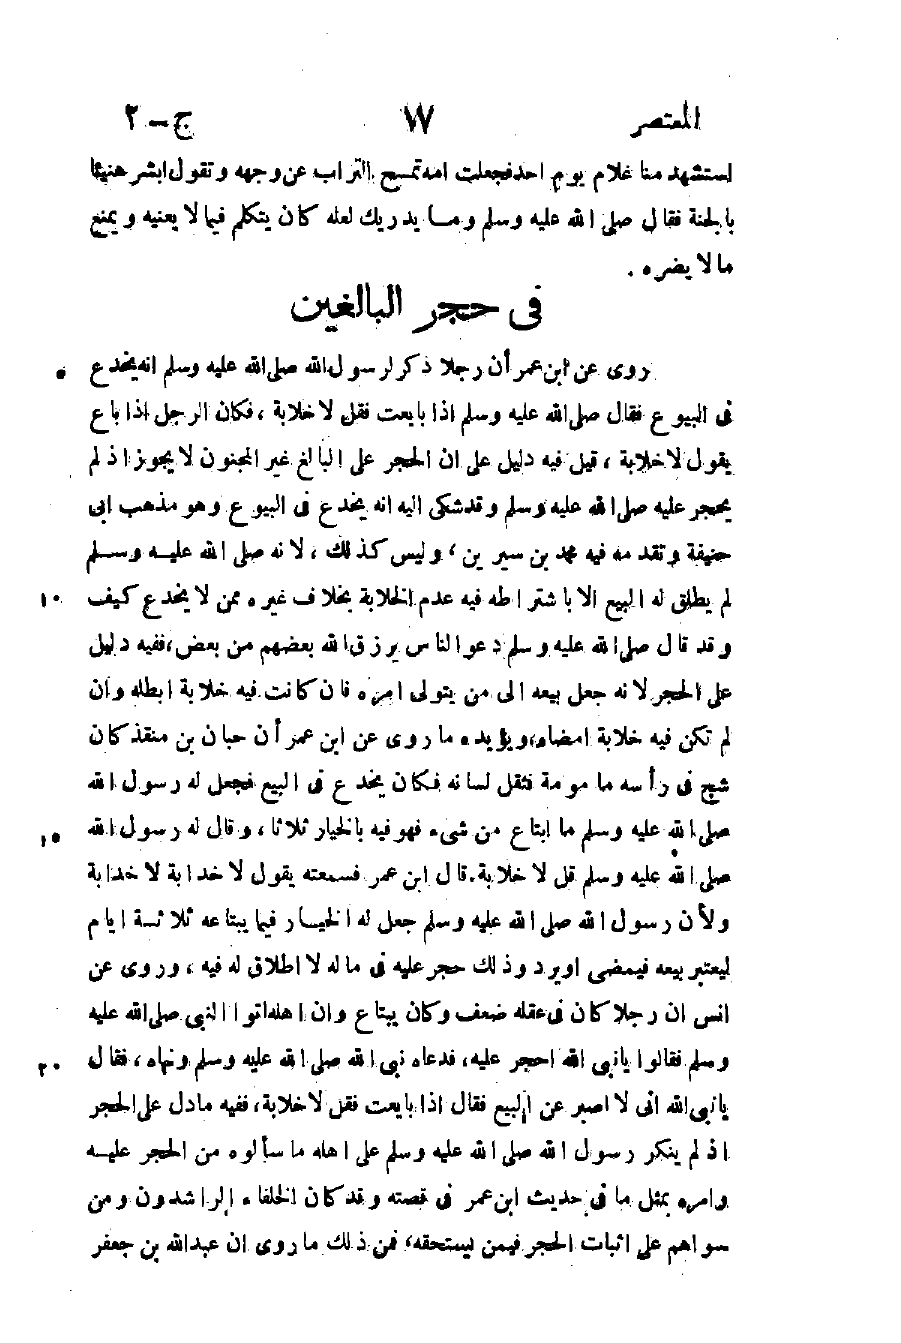 المعتصر ١٧ ج - ٢
استشهد منا غلام يوم احد فجعلت امه تمسح التراب عن وجهه وتقول ابشر هنيئا
بالجنة فقال صلى الله عليه وسلم وما يدريك لعله كان يتكلم فيما لا يعنيه ويمنع
ما لا يضره .
فى حجر البالغين
روى عن ابن عمر أن رجلا ذكر لرسول الله صلى الله عليه وسلم انه يخدع ٥
فى البيوع فقال صلى الله عليه وسلم اذا بايعت فقل لا خلابة ، فكان الرجل اذا باع
يقول لا خلابة ، قيل فيه دليل على ان الحجر على البالغ غير المجنون لا يجوز اذ لم
يحجر عليه صلى الله عليه وسلم وقد شكى اليه انه يخدع فى البيوع وهو مذهب ابى
حنيفة وتقدمه فيه محمد بن سيرين ، وليس كذلك ، لانه صلى الله عليه وسلم
لم يطلق له البيع الا باشتراطه فيه عدم الخلابة بخلاف غيره ممن لا يخدع كيف ١٠
وقد قال صلى الله عليه وسلم دعوا الناس يرزق الله بعضهم من بعض ، ففيه دليل
على الحجر لانه جعل بيعه الى من يتولى امره فان كانت فيه خلابة ابطله وان
لم تكن فيه خلابة امضاه ، ويؤيده ما روى عن ابن عمر أن حبان بن منقذ كان
شج فى رأسه مامومة فثقل لسانه فكان يخدع فى البيع فجعل له رسول الله
صلى الله عليه وسلم ما ابتاع من شىء فهو فيه بالخيار ثلاثا ، وقال له رسول الله ١٥
صلى الله عليه وسلم قل لا خلابة . قال ابن عمر فسمعته يقول لا خذابة لا خذابة
ولأن رسول الله صلى الله عليه وسلم جعل له الخيار فيما يبتاعه ثلاثة ايام
ليعتبر بيعه فيمضى اويرد وذلك حجر عليه فى ماله لا اطلاق له فيه ، وروى عن
انس ان رجلا كان فى عقله ضعف وكان يبتاع وان اهله اتوا النبى صلى الله عليه
وسلم فقالوا يا نبى الله احجر عليه ، فدعاه نبى الله صلى الله عليه وسلم ونهاه ، فقال ٢٠
يا نبى الله انى لا اصبر عن البيع فقال اذا بايعت فقل لا خلابة ، ففيه ما دل على الحجر
اذ لم ينكر رسول الله صلى الله عليه وسلم على اهله ما سألوه من الحجر عليه
وامره بمثل ما فى حديث ابن عمر فى قصته وقد كان الخلفاء الراشدون ومن
سواهم على اثبات الحجر فيمن يستحقه ، فمن ذلك ما روى ان عبدالله بن جعفر